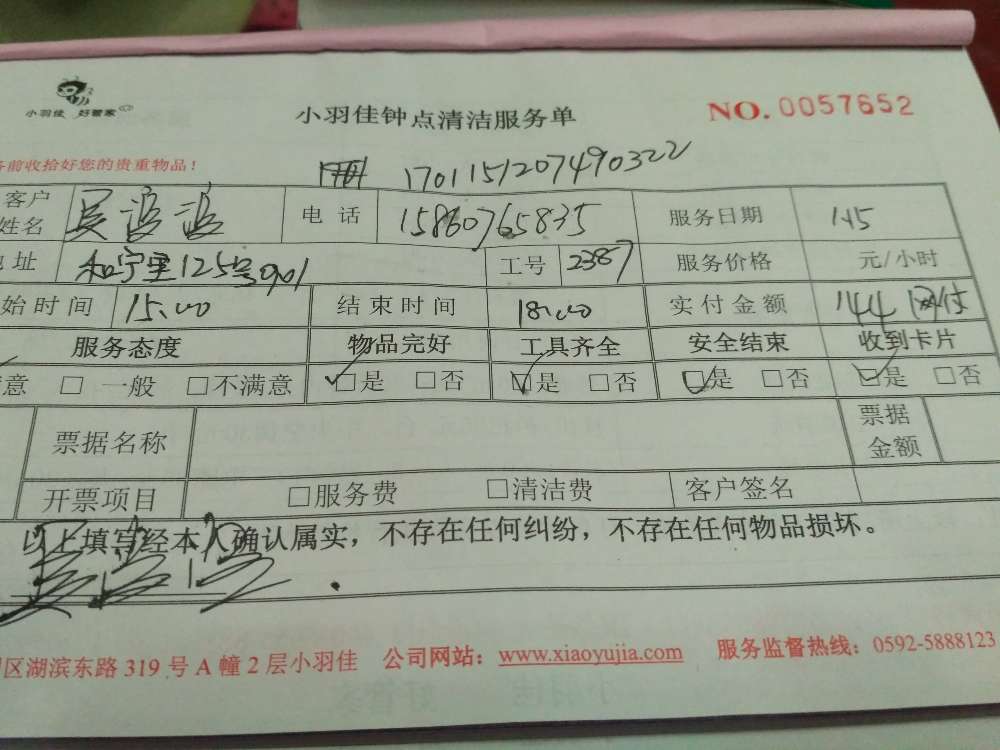 小羽佳 好管家
小羽佳钟点清洁服务单
NO. 0057652
前收拾好您的贵重物品！
170115120749 0322
客户姓名 吴 电话 15860765835 服务日期 1.15
地址 和宁里125号901 工号 2387 服务价格 元/小时
始时间 15:00 结束时间 18:00 实付金额 144 网付
服务态度 物品完好 工具齐全 安全结束 收到卡片
意 □ 一般 □不满意 □是 □否 □是 □否 □是 □否 □是 □否
票据名称 票据金额
开票项目 □服务费 □清洁费 客户签名
以上填写经本人确认属实，不存在任何纠纷，不存在任何物品损坏。
区湖滨东路 319 号 A 幢 2 层小羽佳 公司网站：www.xiaoyujia.com 服务监督热线：0592-5888123